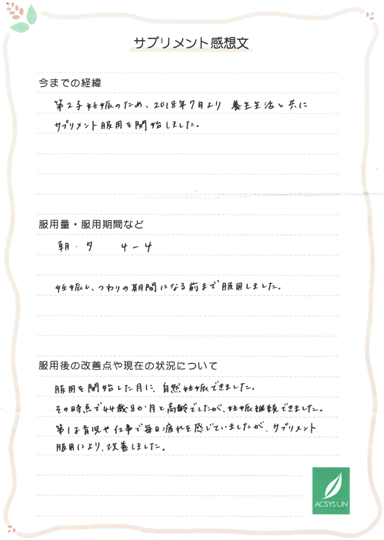 サプリメント感想文
今までの経緯
第2子妊娠のため、2018年7月より 養生生活と共に
サプリメント服用を開始しました。
服用量・服用期間など
朝・夕 4-4
妊娠し、つわりの期間になる前まで服用しました。
服用後の改善点や現在の状況について
服用を開始した月に、自然妊娠できました。
その時点で44歳8か月と高齢でしたが、妊娠継続できました。
第1子育児や仕事で毎日疲れを感じていましたが、サプリメント
服用により、改善しました。
ACSYS UN